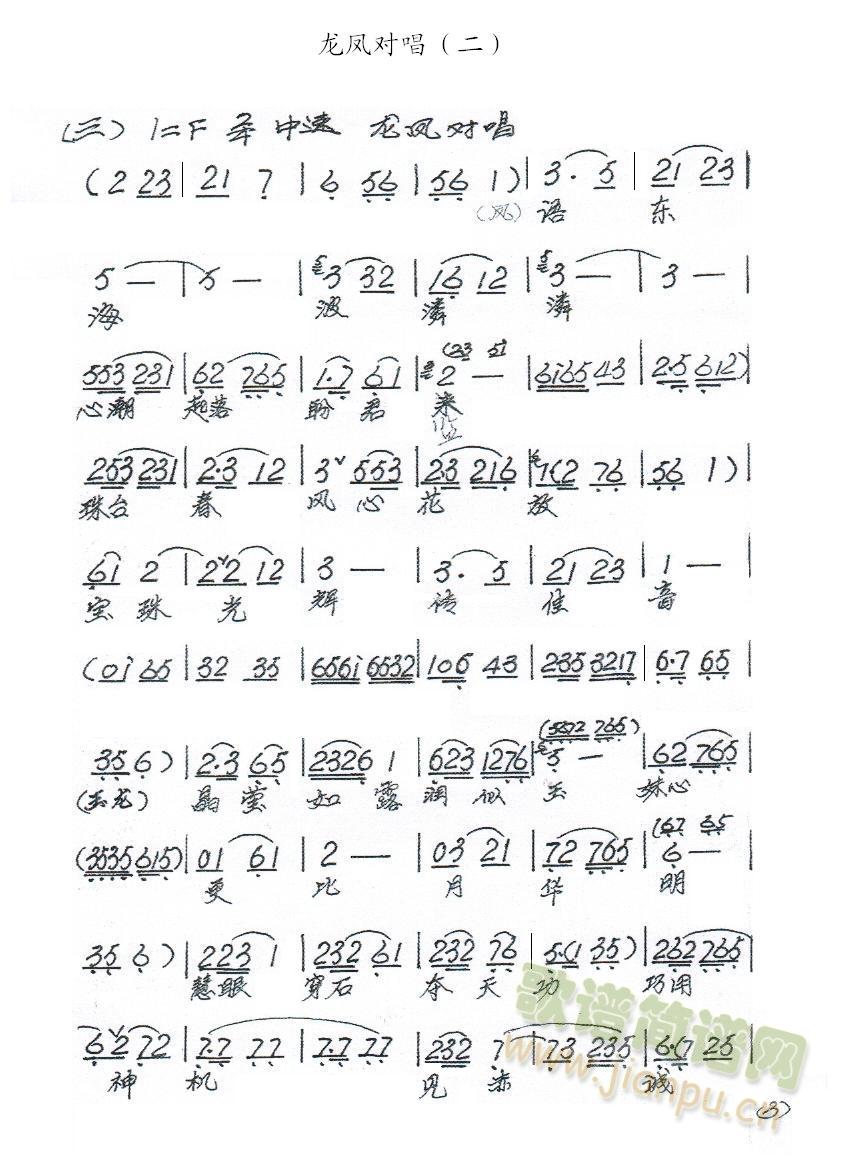 龙凤对唱（二）
（三）1=F 中速 龙凤对唱
(2 23 | 21 7 | 6 56 | 56 1) | 3. 5 | 21 23 |
(凤) 语 东
5 — | 5 — | 3 32 | 16 12 | 3 — | 3 — |
海 波 潾 潾
553 231 | 62 765 | 1.7 61 | 2 — | 6i65 43 | 2.5 612) |
心潮 起落 盼 君 来
253 231 | 2.3 12 | 3 553 | 2.3 216 | 1(2 76 | 56 1) |
珠台 春 风 心 花 放
61 2 | 2 2 12 | 3 — | 3. 5 | 21 23 | 1 — |
宝 珠 光 辉 传 佳 音
(0i 65 | 32 35 | 656i 6532 | 106 43 | 235 3217 | 6.7 65 |
(5672 765)
356) | 2.3 65 | 2326 1 | 623 1276 | 5 — | 62 765 |
(玉龙) 晶 莹 如 露 润 似 玉 妹心
(67 35
(3535 615) | 01 61 | 2 — | 03 21 | 72 765 | 6 — |
更 比 月 华 明
35 6) | 223 1 | 232 61 | 232 76 | 5.(1 35) | 262 765 |
慧眼 穿石 夺 天 功 巧用
62 72 | 7.7 77 | 7.7 77 | 232 7 | 73 235 | 6.(7 25 |
神 机 见 赤 诚
歌谱简谱网
www.jianpu.cn
(3)